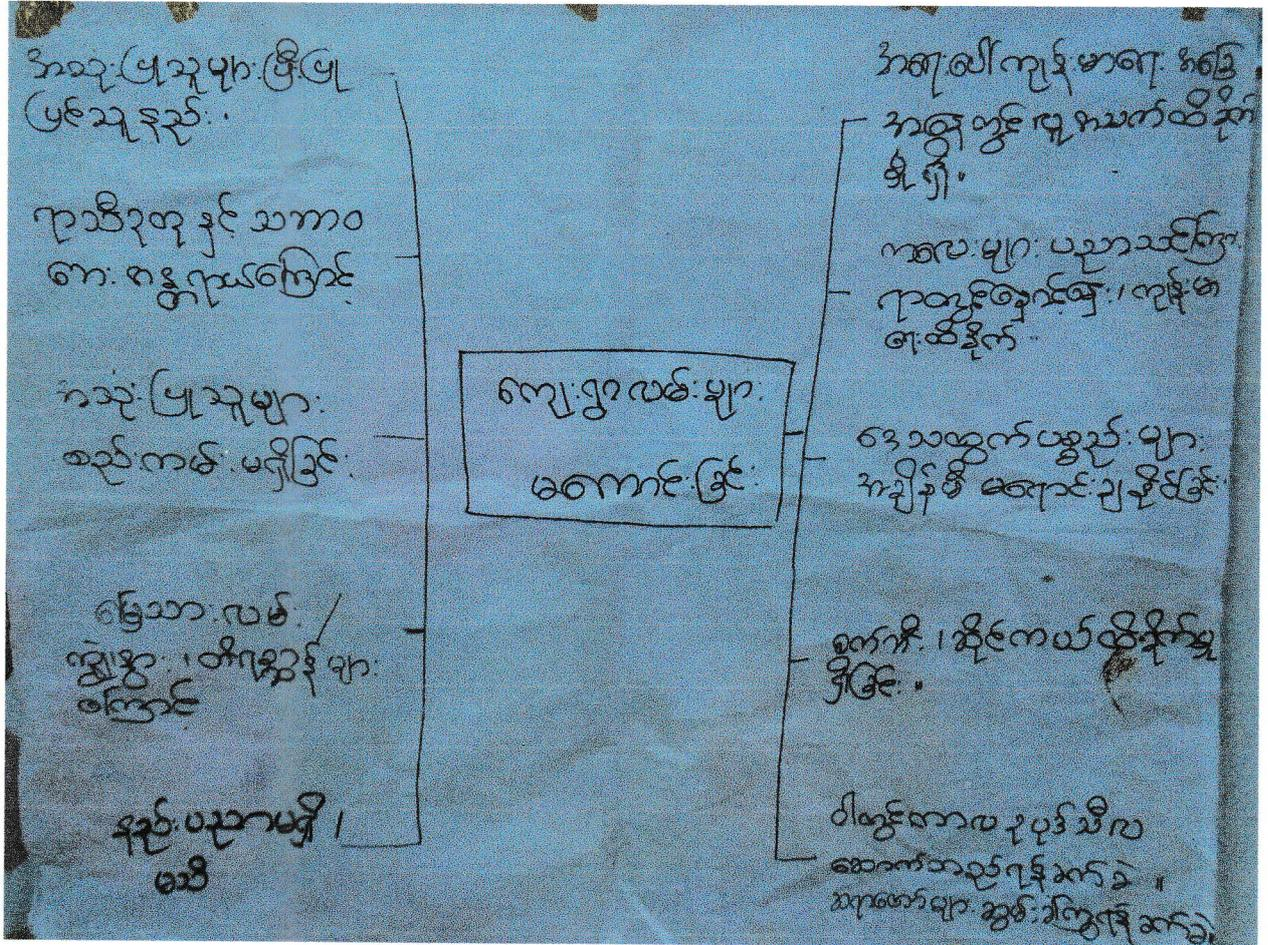 အသုံးပြုသူများပြီးပြု
ပြင်သူနည်း
ရာသီဥတုနှင့် သဘာဝ
ဘေးအန္တရာယ်ကြောင့်
အသုံးပြုသူများ
စည်းကမ်းမရှိခြင်း
မြေသားလမ်း
ကျွဲ၊နွား၊တိရစ္ဆာန်များ
ကြောင့်
နည်းပညာမရှိ၊
မသိ
ကျေးရွာလမ်းများ
မကောင်းခြင်း
အရေးပေါ်ကျန်းမာရေး အခြေ
အနေတွင် လူ့အသက်ထိခိုက်
မှုရှိ။
ကလေးများ ပညာသင်ကြား
ရာတွင်နှောင့်နှေး၊ကျန်းမာ
ရေးထိခိုက်
ဒေသထွက်ပစ္စည်းများ
အချိန်မီ မရောင်းချနိုင်ခြင်း
စက်ဘီး၊ဆိုင်ကယ်ထိခိုက်မှု
ရှိခြင်း။
ဝါတွင်းကာလဥပုဒ်သီလ
ဆောက်တည်ရန်ခက်ခဲ။
ဆရာတော်များဆွမ်းခံကြွရန်ခက်ခဲ